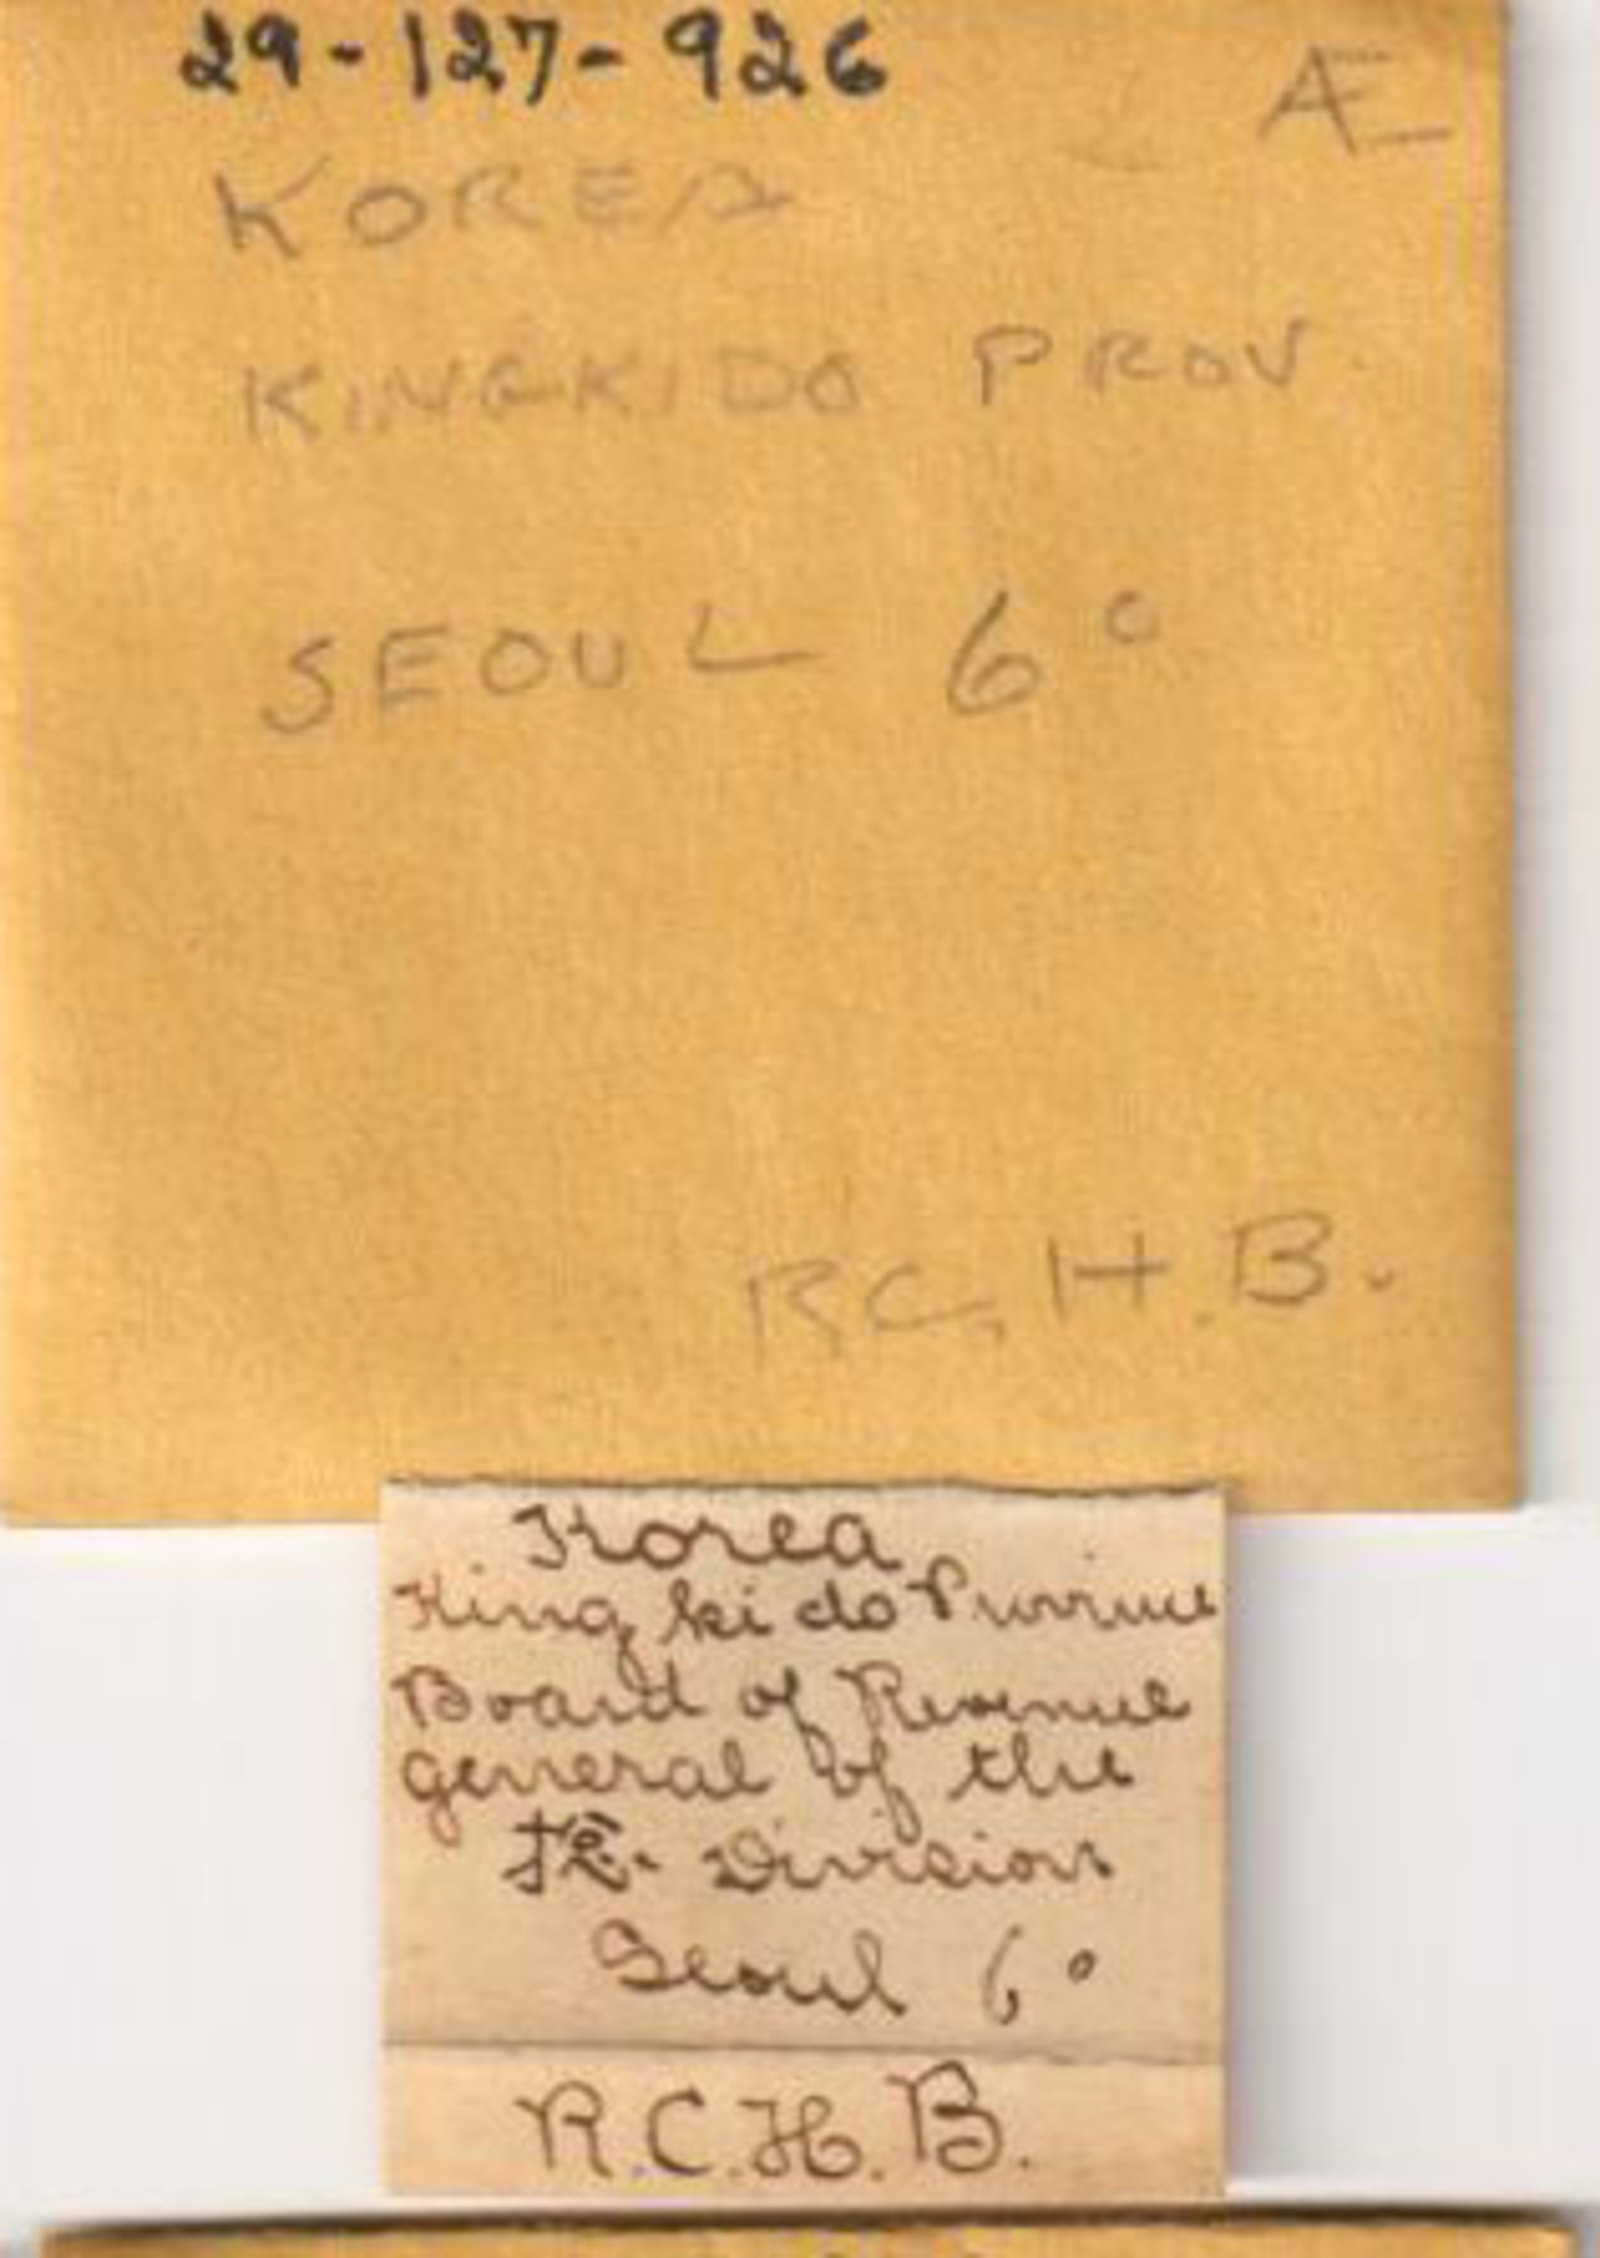 29-127-926
Æ
KOREA
KINGKIDO PROV.
SEOUL 6°
R.C.H.B.
Korea
King ki do Province
Board of Revenue
general of the
Division
Seoul 6°
R.C.H.B.